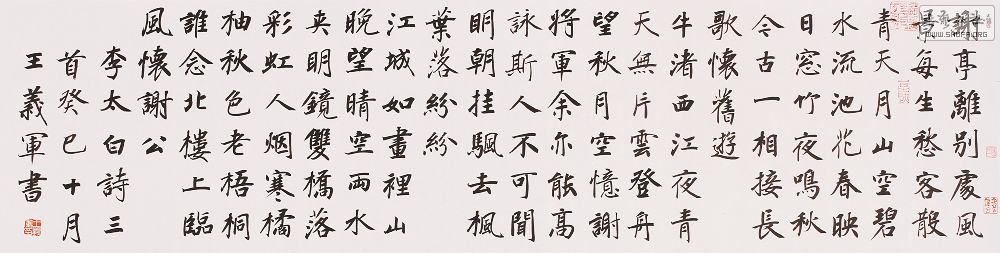 謝亭離別處風
景每生愁客散
青天月山空碧
水流池花春映
日窗竹夜鳴秋
今古一相接長
歌懷舊遊
牛渚西江夜青
天無片雲登舟
望秋月空憶謝
將軍余亦能高
詠斯人不可聞
明朝挂颿去楓
葉落紛紛
江城如畫裡山
晚望晴空兩水
夾明鏡雙橋落
彩虹人烟寒橘
柚秋色老梧桐
誰念北樓上臨
風懷謝公
李太白詩三
首癸巳十月
王義軍書
WWW.SHUFA.ORG